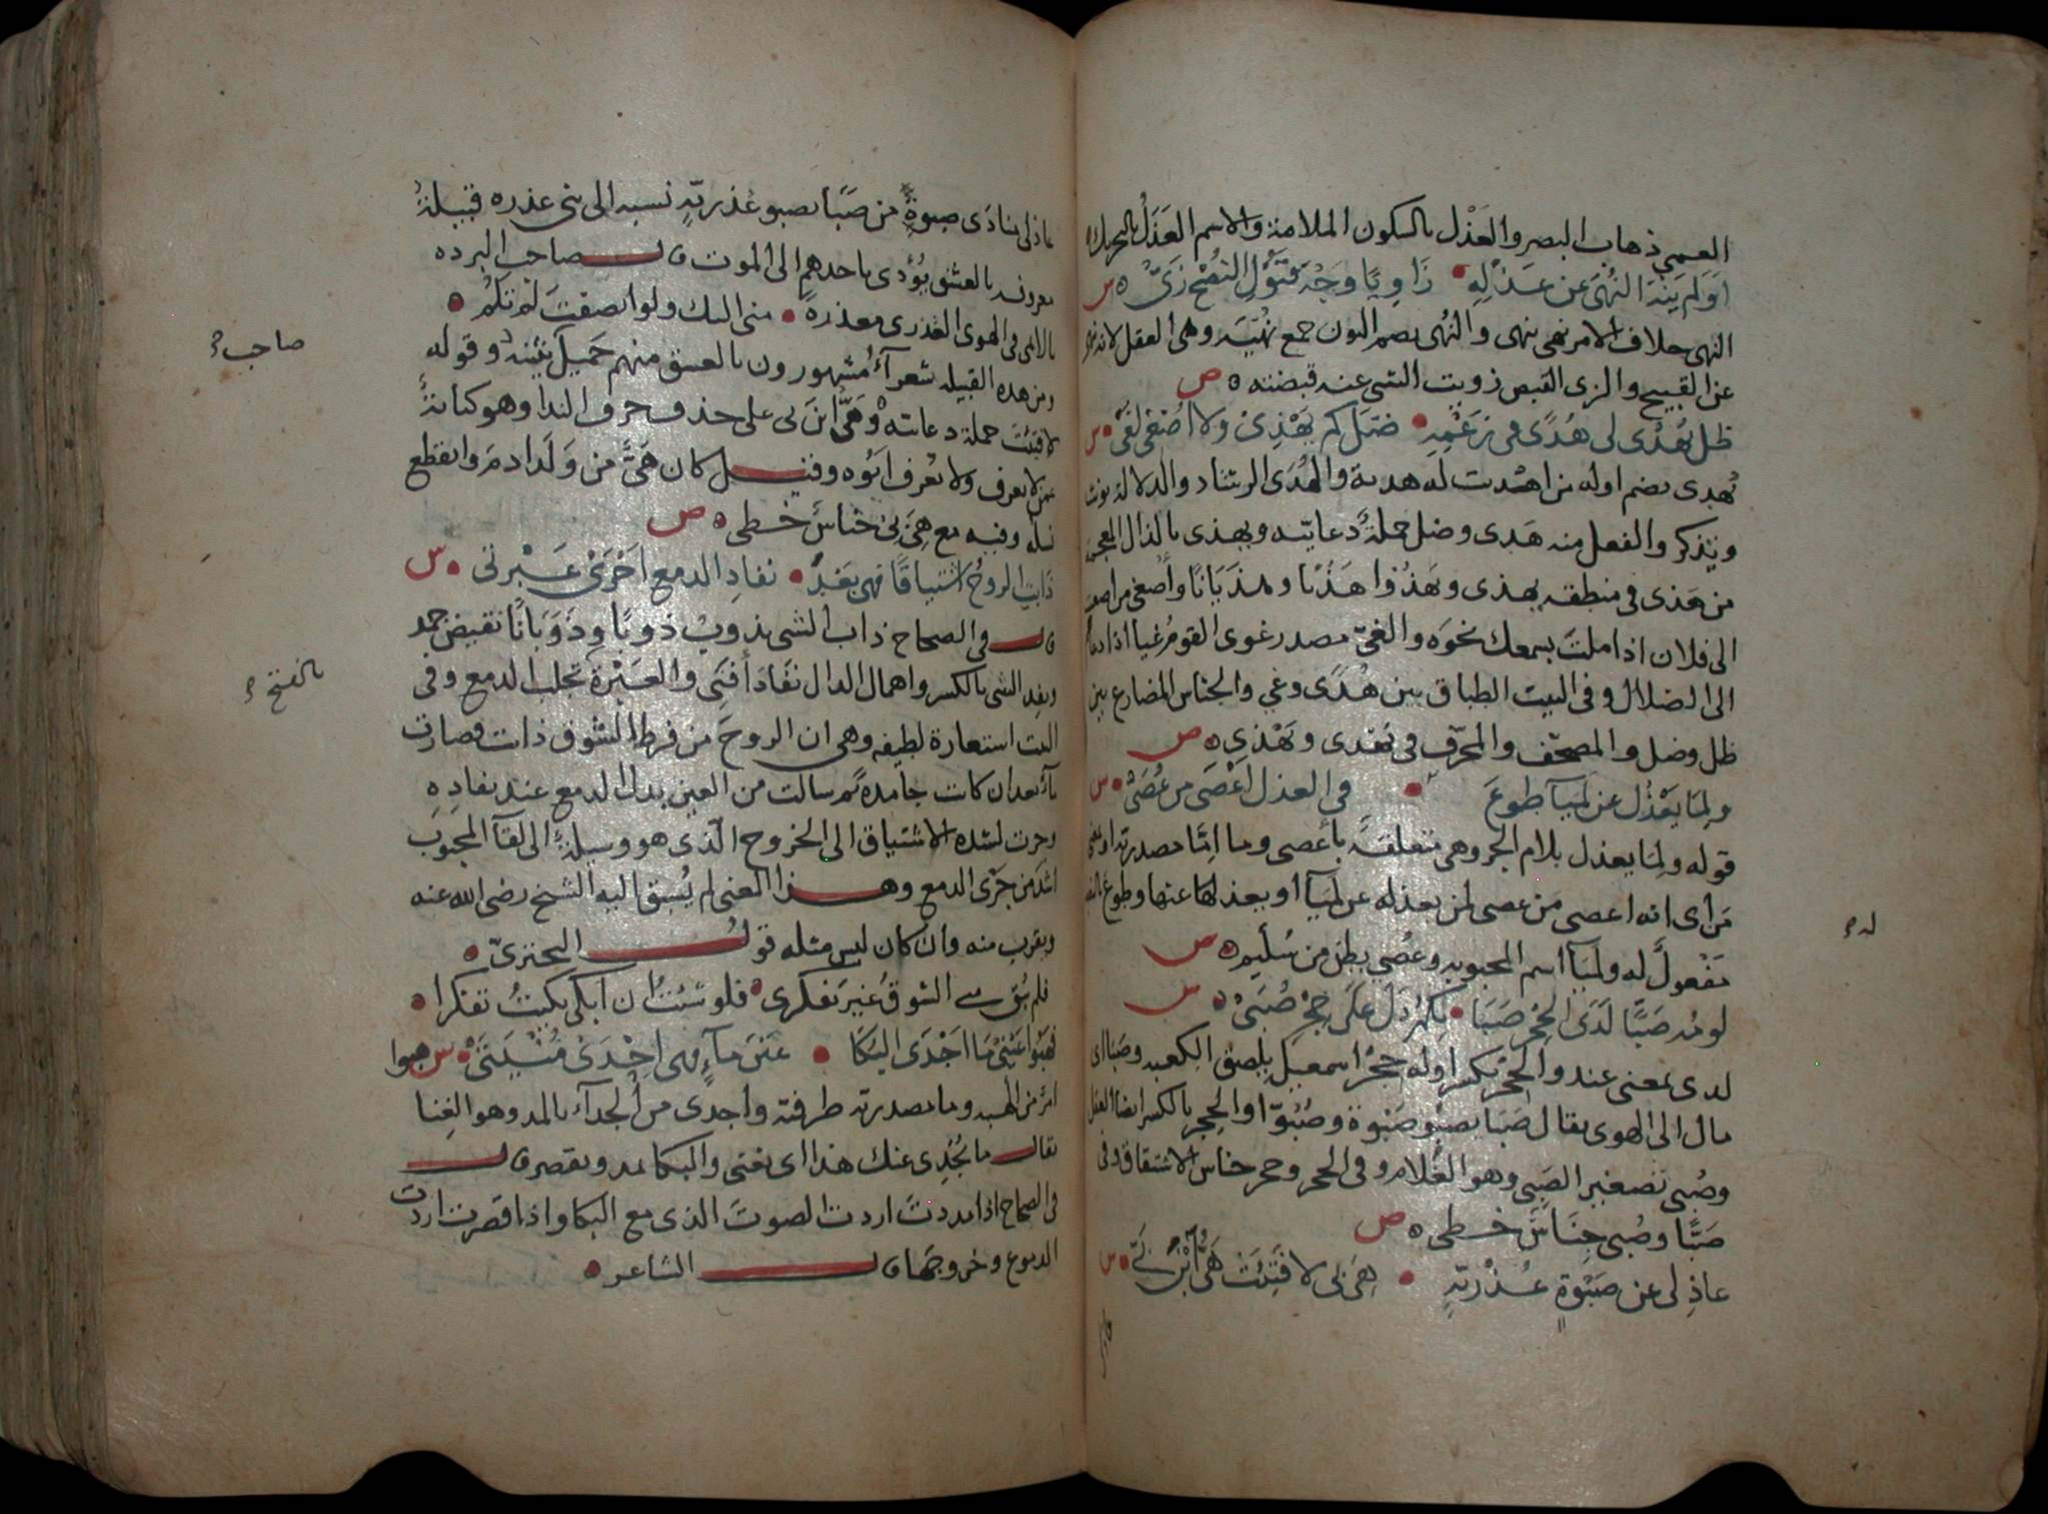 العمي ذهاب البصر والعَذْل بالسكون الملامة والاسم العَذَلُ بالتحريك
أوَلم يَنْهَ النُّهَى عن عَذْلِهِ • زَاوِيًا وَجْهَ قَبُولِ النُّصْحِ زَيّْ ه س
النهى خلاف الامر نهى ينهى والنُهى بضم النون جمع نُهْيَة وهى العقل لانه ينهى
عن القبيح والزى القبض زويت الشى عنه قبضته ه ص
ظل يُهْدى لى هُدًى فى زعْمِهِ • ضَلَّ كم يَهْذِى ولا اُصْغِى لغَىّْ • س
يُهدى بضم اوله من اهديت له هدية والهُدَى الرشاد والدلالة يونث
ويذكر والفعل منه هَدى وضل جملةٌ دعائيّة ويهذى بالذال المعجمة
من هَذى فى منطقه يهذى ويَهذُوا هَذْيًا وهَذَيَانًا وأُصغى من اصغيت
الى فلان اذا ملتَ بسمعك نحوَه والغىّ مصدر غوى القوم غيا اذا دعاهم
الى الضلال وفى البيت الطباق بين هُدًى وغي والجناس المضارع بين
ظل وضل والمصحّف والمحرّف فى يُهْدى ويَهْذِى ه ص
ولِمَا يَعْذُل عن لَميَآ طوعَ • فى العذل اَعْصَى من عُصَىّْ • س
قوله ولِمَا يعذل بلام الجر وهى متعلقةٌ بأعصى وما امّا مصدرية او بمعنى
مَن أى انه اعصى مَن عصى لمن يعذله عن لَميَآ او يعذلها عنها وطوعَ بالنصب
مَفْعولٌ له ولَميَآ اسم المحبوبه وعُصَي بطن من سُلَيم ه ص
لومُه صَبًّا لَدَى الحِجْرِ صَبَا • بِكُمُ دَلَّ عَلَى حِجْرِ صُبَىّْ ه س
لدى بمعنى عند والحِجْر بكسر اوله حِجْر اسمعيل بلصق الكعبه وصَبَا اى
مال الى الهوى يقال صَبَا يصبُو صَبْوةً وصُبُوّا والحِجر بالكسر ايضا العقل
وصُبى تصغير الصَبِى وهو الغُلام وفى الحجر وحجر جناس الاشتقاق وفى
صَبَّا وصُبى جِنَاسٌ خطى ه ص
عاذِلى عن صَبْوةٍ عُذْرِيّةٍ • هِىَ بى لا فَتِئَتْ هَىُّ ابْنُ بَىّْ • س
له
عاذلى منادَى صبوةٌ من صَبَا يصبو عُذريّةٍ نسبه الى بنى عذره قبيلةٌ
معروفه بالعشق يُؤدى باحدهم الى الموت قال صاحب البرده
يا لائمى فى الهوى العذرى معذرةً • منى اليك ولو انصفتَ لم تلُمِ •
ومن هذه القبيله شعرآءُ مُشهورون بالعشق منهم جَميل بثينة وقوله
لا فتِئتْ جملة دعائيه وهَىُّ ابنَ بى على حذف حرف الندا وهو كنايةٌ
عمن لا يعرف ولا يُعرف ابُوه وقيل كان هَىّ من وَلَد ادمَ وانقطع
نسله وفيه مع هِىَ بى جناسٌ خطى ه ص
ذابتِ الروحُ اشتياقًا فهى بَعْدَ • نفادِ الدمعِ اَجْرَىْ عَبْرتَىّْ • س
قال فى الصحاح ذاب الشى يذوبُ ذوبًا وذَوَبَانًا نقيض جمد
ونفِد الشى بالكسر واهمال الدال نفَادًا فَنِى والعَبْرة تجلب الدمع وفى
البيت استعارة لطيفه وهى ان الروحَ من فرط الشوق ذابت وصارت
مآءً بعد ان كانت جامدةً ثم سالت من العين بدل الدمع عند نفادِه
وجرت لشدة الاشتياق الى الخروج الّذى هو وسيلةٌ الى لقآ المحبوب
اشدَّ من جَرْى الدمع وهذا المعنى لم يُسبق اليه الشيخ رضى الله عنه
ويقرب منه وان كان ليس مثله قولُ البحترىّ •
فلم يُبْق منى الشوقُ غيرَ تفكرى • فلو شئتُ ان ابكى بكيتُ تفكرا •
فهَبُوا عَيْنَىَّ مَا اَجْدَى البُكَا • عَيْنَ مآءٍ فهى اِحْدَىْ مُنْيَتَىّْ • س هبوا
امرٌ من الهبه وما مصدرية ظرفيّة واجدى من الجدآء بالمد وهو الغِنا
يقال ما يُجْدِى عنك هذا اى يغنى والبكا يمد ويقصر قال
فى الصحاح اذا مددتَ اردتَ الصوتَ الذى مع البكا واذا قصرت اردت
الدموع وخروجَها قال الشاعر •
صاحب
بالفتح